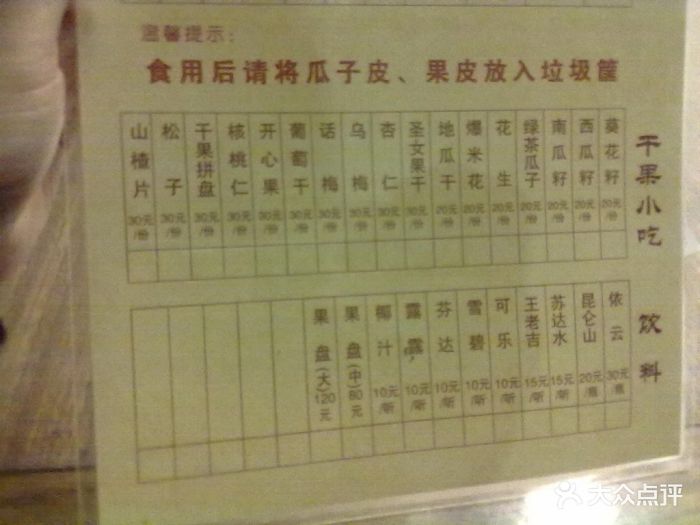 温馨提示:
食用后请将瓜子皮、果皮放入垃圾筐
干果小吃
葵花籽 20元/份
西瓜籽 20元/份
南瓜籽 20元/份
绿茶瓜子 20元/份
花生 20元/份
爆米花 20元/份
地瓜干 20元/份
圣女果干 30元/份
杏仁 30元/份
乌梅 30元/份
话梅 30元/份
葡萄干 30元/份
开心果 30元/份
核桃仁 30元/份
干果拼盘 30元/份
松子 30元/份
山楂片 30元/份
饮料
依云 30元/瓶
昆仑山 20元/瓶
苏达水 15元/听
王老吉 15元/听
可乐 10元/听
雪碧 10元/听
芬达 10元/听
露露 10元/听
椰汁 10元/听
果盘(中)80元
果盘(大)120元
大众点评